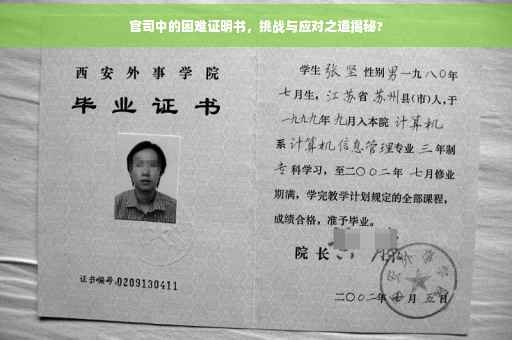 官司中的困难证明书，挑战与应对之道揭秘？
西安外事学院
毕业证书
证书编号:0209130411
学生 张坚 性别 男 一九八〇年
七月生，江苏省 苏州县(市)人，于
一九九九年 九月入本院 计算机
系 计算机信息管理专业 三 年制
专 科学习，至二〇〇二年 七月修业
期满，学完教学计划规定的全部课程，
成绩合格，准予毕业。
院 长
二〇〇二年 月 五日